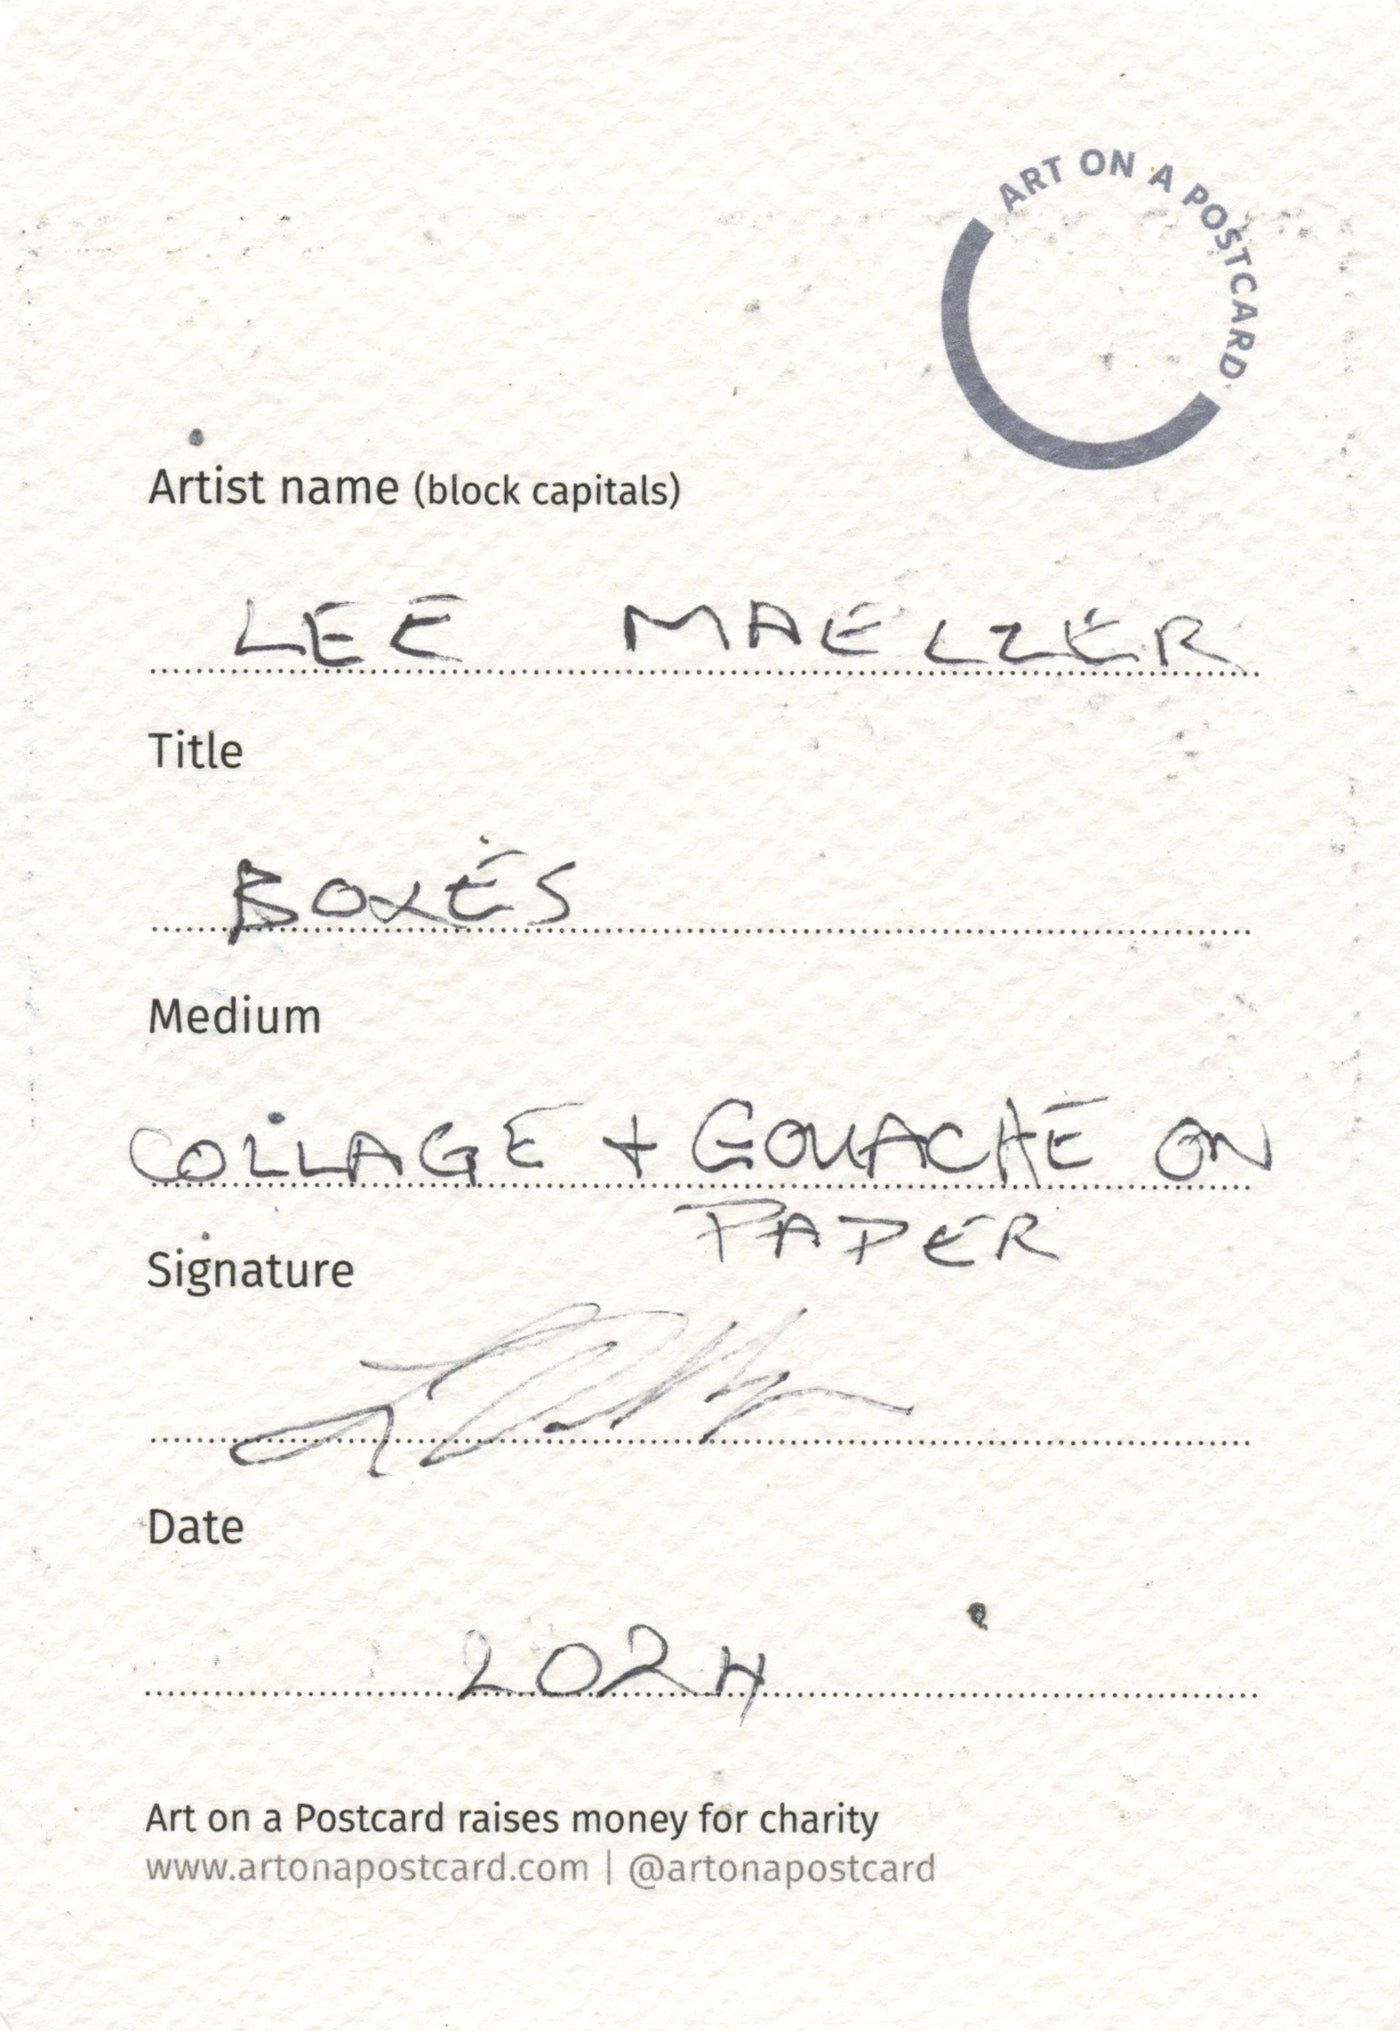 ART ON A POSTCARD
Artist name (block capitals)
LEE MAELZER
Title
BOXES
Medium
COLLAGE + GOUACHE ON
PAPER
Signature
Date
2024
Art on a Postcard raises money for charity
www.artonapostcard.com | @artonapostcard